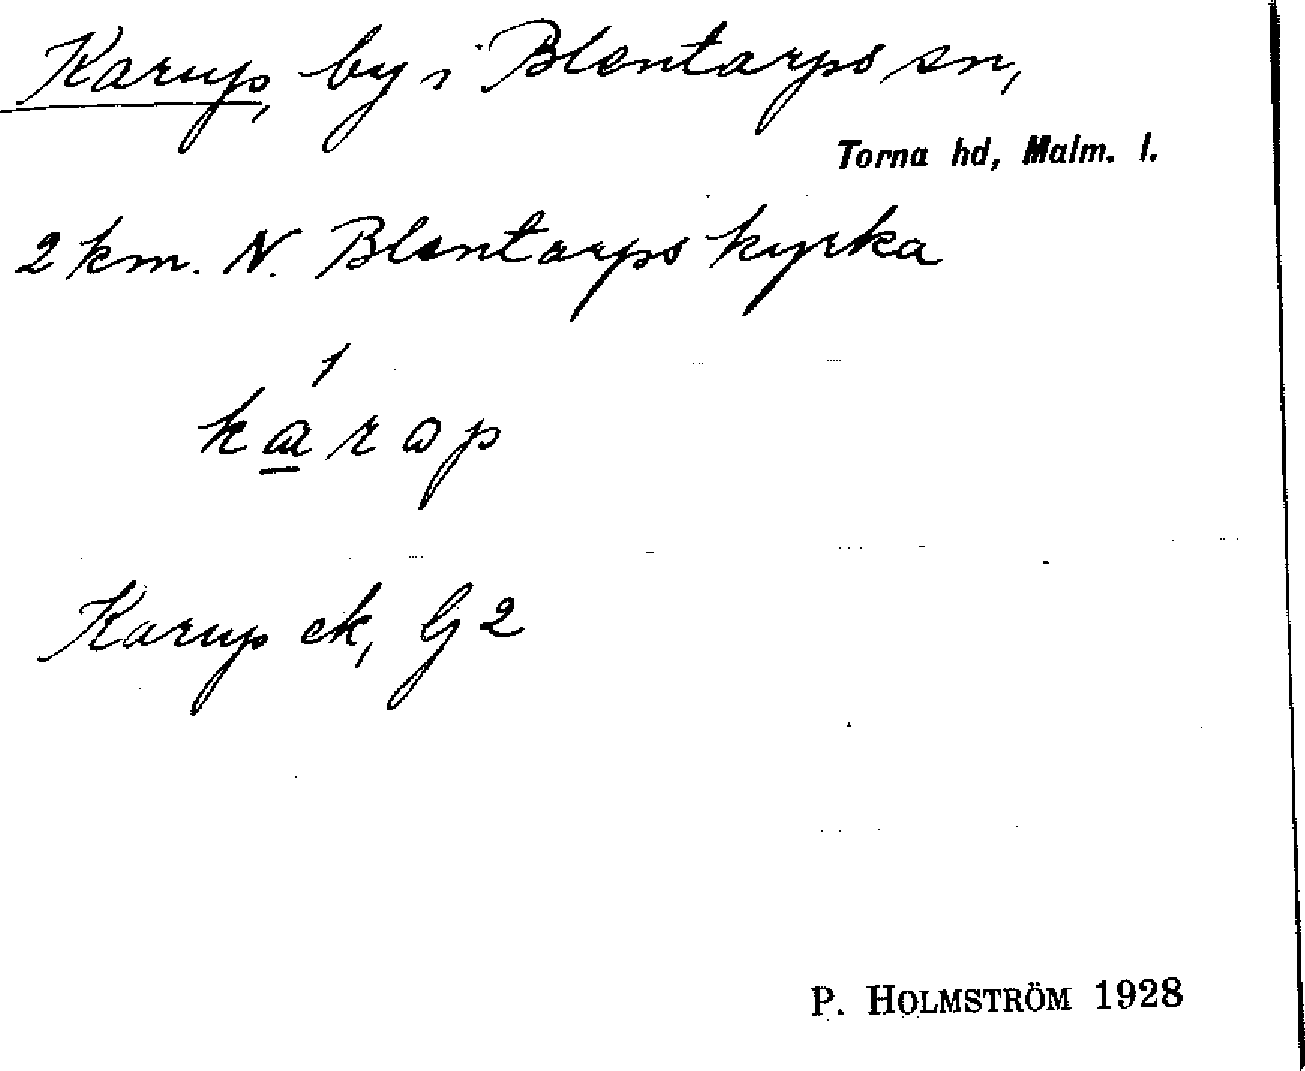 Karup, by i Blentarps sn,
Torna hd, Malm. l.
2 km. N. Blentarps kyrka
kárap
Karup ek, G 2
P. HOLMSTRÖM 1928